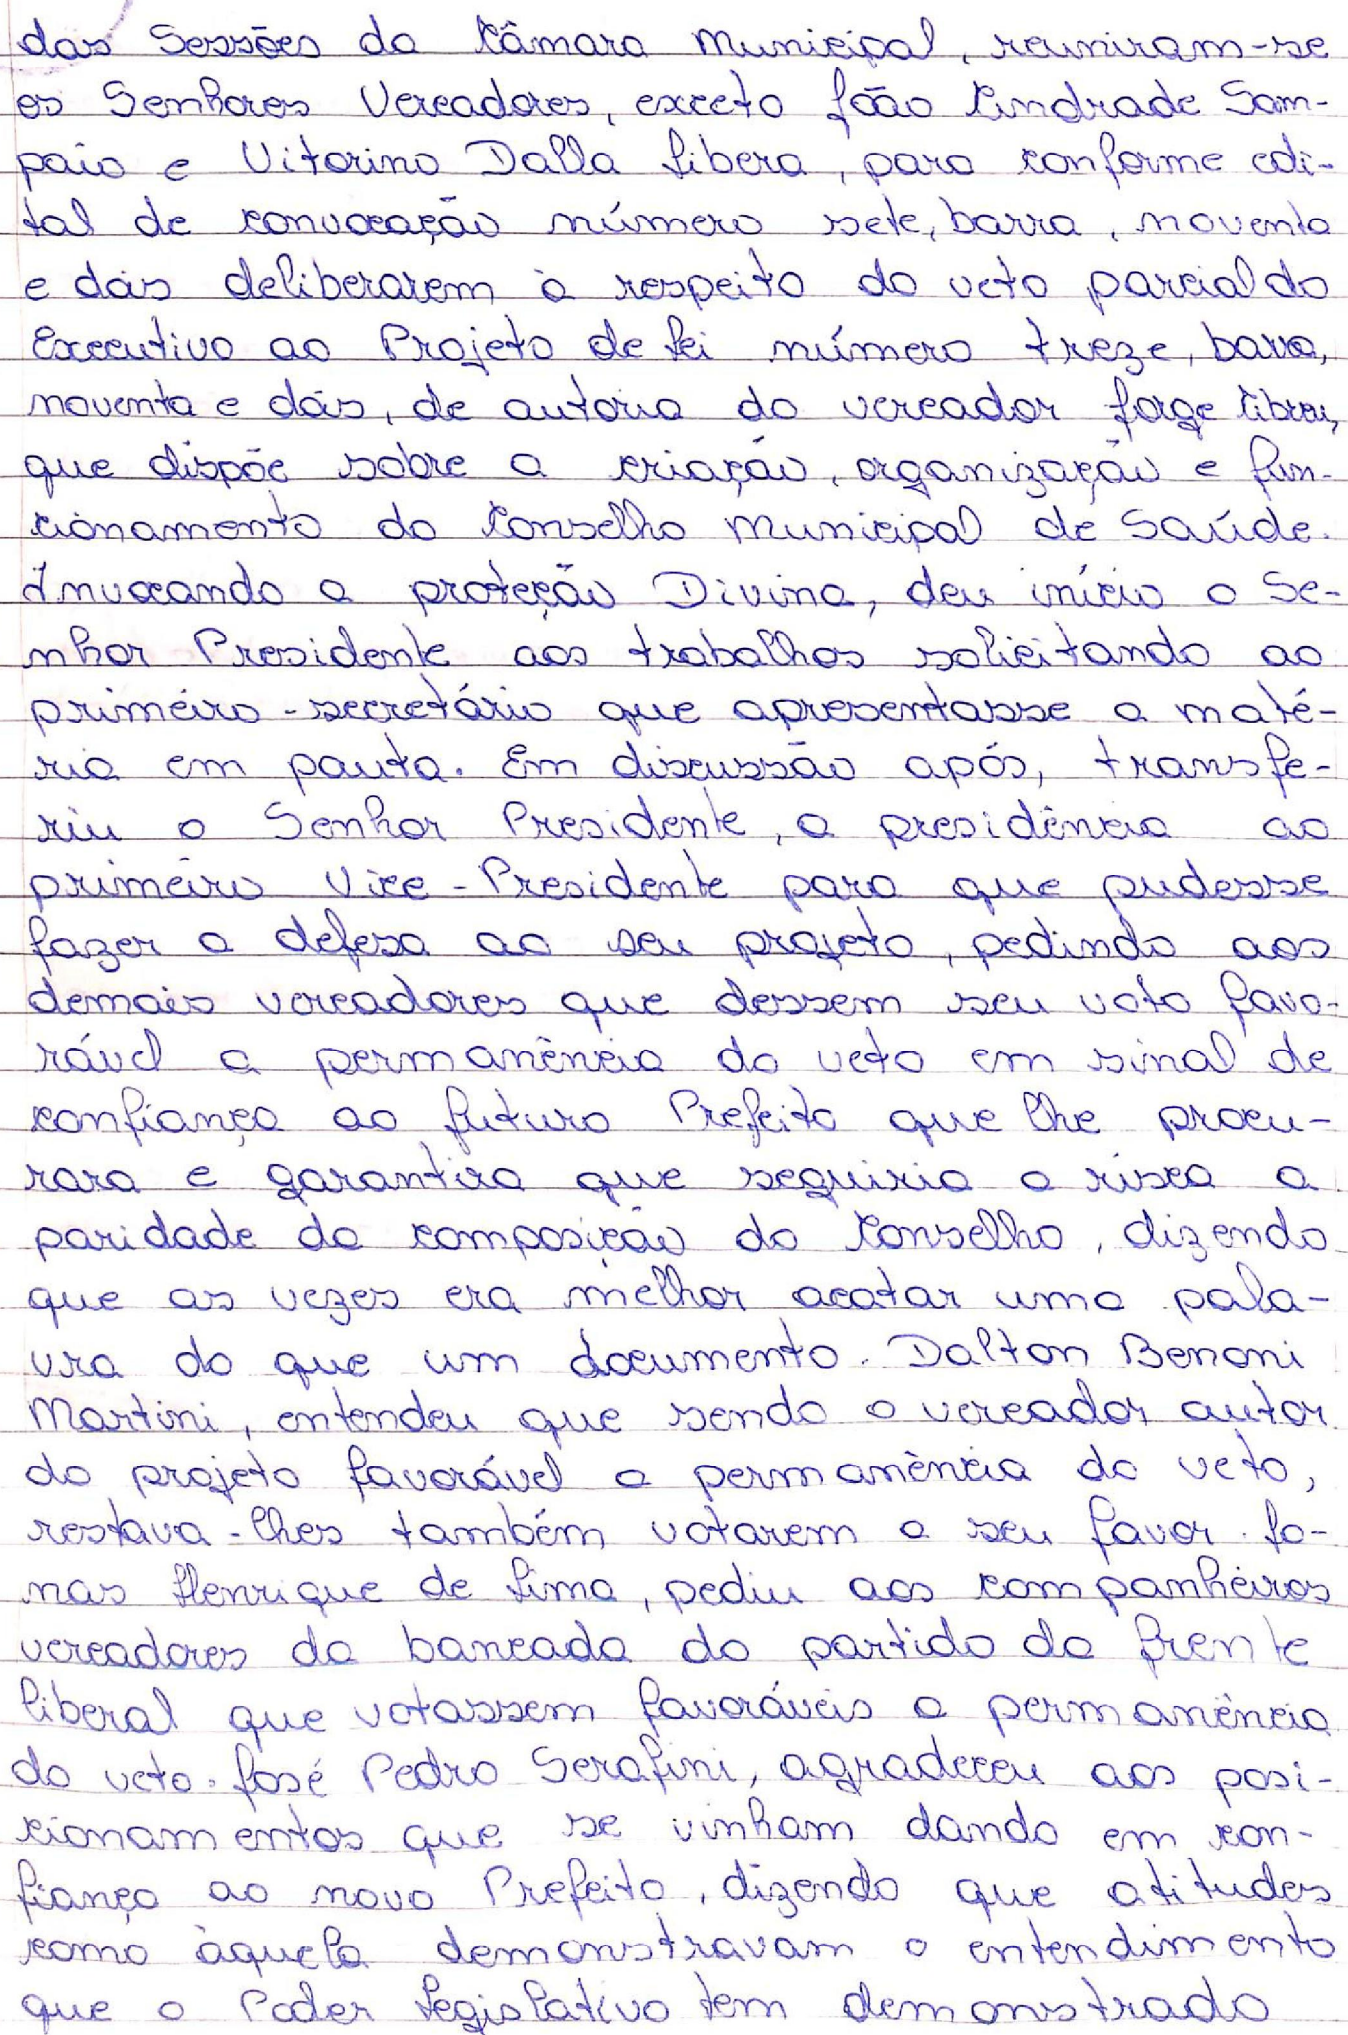 das Sessões da Câmara Municipal, reuniram-se
os Senhores Vereadores, exceto João Andrade Sam-
paio e Vitorino Dalla Libera, para conforme edi-
tal de convocação número sete, barra, noventa
e dois deliberarem à respeito do veto parcial do
Executivo ao Projeto de Lei número treze, barra,
noventa e dois, de autoria do vereador Jorge Abreu,
que dispõe sobre a criação, organização e fun-
cionamento do Conselho Municipal de Saúde.
Invocando a proteção Divina, deu início o Se-
nhor Presidente aos trabalhos solicitando ao
primeiro-secretário que apresentasse a maté-
ria em pauta. Em discussão após, transfe-
riu o Senhor Presidente, a presidência ao
primeiro Vice-Presidente para que pudesse
fazer a defesa ao seu projeto, pedindo aos
demais vereadores que dessem seu voto favo-
rável a permanência do veto em sinal de
confiança ao futuro Prefeito que lhe procu-
rara e garantira que seguiria a risca a
paridade da composição do Conselho, dizendo
que as vezes era melhor acatar uma pala-
vra do que um documento. Dalton Benoni
Martini, entendeu que sendo o vereador autor
do projeto favorável a permanência do veto,
restava-lhes também votarem a seu favor. Jo-
nas Henrique de Lima, pediu aos companheiros
vereadores da bancada do partido da frente
liberal que votassem favoráveis a permanência
do veto. José Pedro Serafini, agradeceu aos posi-
cionamentos que se vinham dando em con-
fiança ao novo Prefeito, dizendo que atitudes
como àquela demonstravam o entendimento
que o Poder Legislativo tem demonstrado